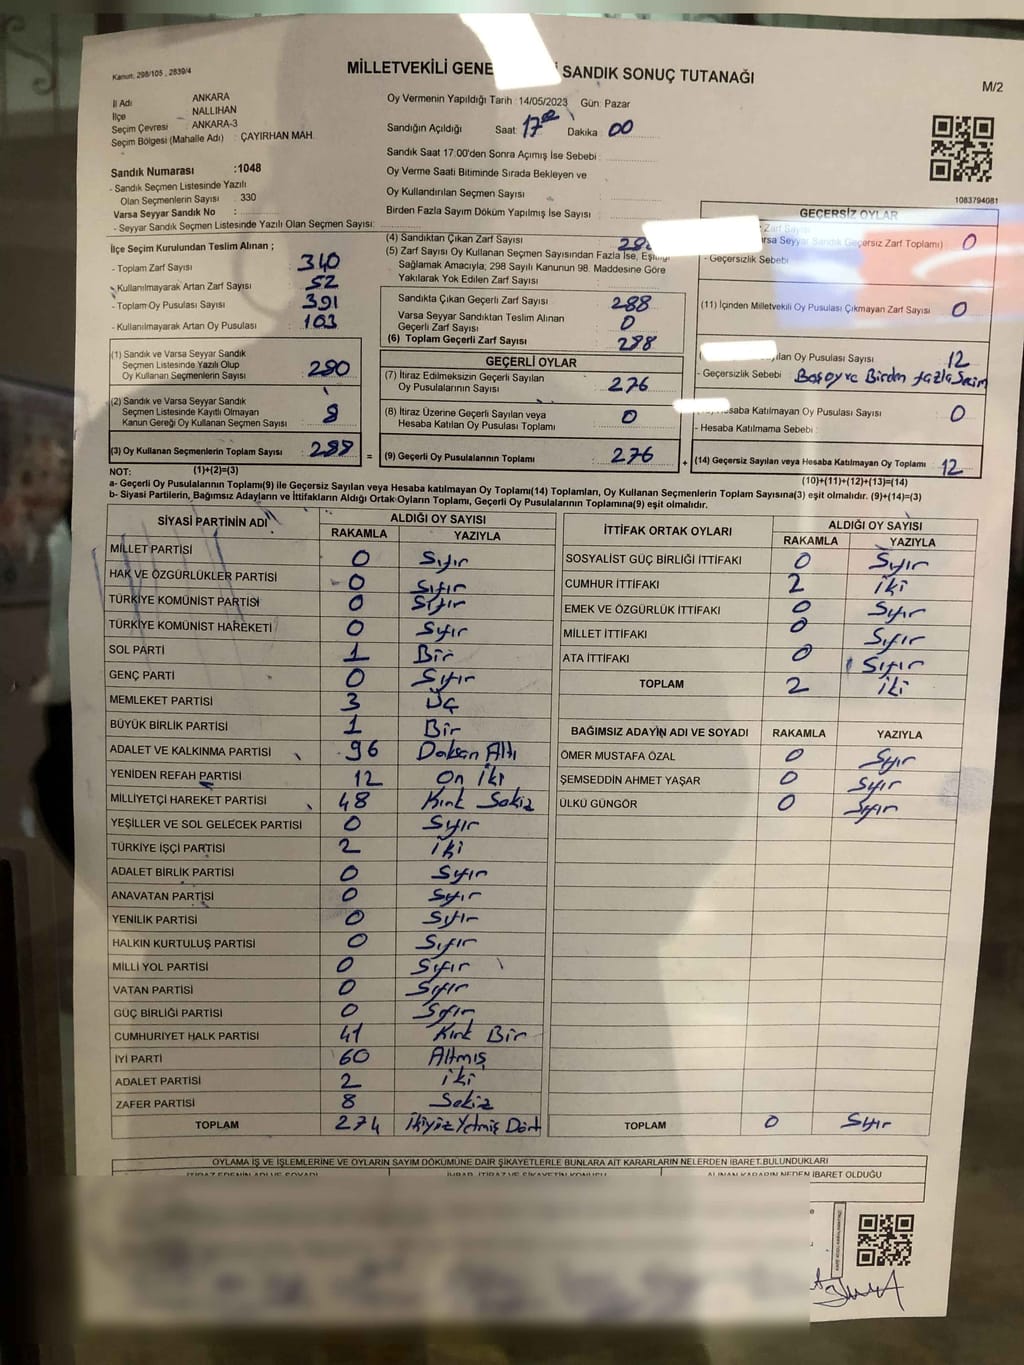 Kanun. 298/105 , 2839/4
MİLLETVEKİLİ GENE SANDIK SONUÇ TUTANAĞI
M/2
İl Adı ANKARA
İlçe NALLIHAN
Seçim Çevresi : ANKARA-3
Seçim Bölgesi (Mahalle Adı) : ÇAYIRHAN MAH.
Oy Vermenin Yapıldığı Tarih : 14/05/2023 Gün: Pazar
Sandığın Açıldığı Saat: 17 Dakika 00
Sandık Saat 17:00'den Sonra Açımış İse Sebebi :
Oy Verme Saati Bitiminde Sırada Bekleyen ve
Oy Kullandırılan Seçmen Sayısı :
Birden Fazla Sayım Döküm Yapılmış İse Sayısı :
Sandık Numarası :1048
- Sandık Seçmen Listesinde Yazılı
Olan Seçmenlerin Sayısı : 330
Varsa Seyyar Sandık No :
- Seyyar Sandık Seçmen Listesinde Yazılı Olan Seçmen Sayısı:
1083794081
İlçe Seçim Kurulundan Teslim Alınan ;
- Toplam Zarf Sayısı : 340
- Kullanılmayarak Artan Zarf Sayısı : 52
- Toplam Oy Pusulası Sayısı : 391
- Kullanılmayarak Artan Oy Pusulası : 103
(1) Sandık ve Varsa Seyyar Sandık
Seçmen Listesinde Yazılı Olup
Oy Kullanan Seçmenlerin Sayısı : 280
(2) Sandık ve Varsa Seyyar Sandık
Seçmen Listesinde Kayıtlı Olmayan
Kanun Gereği Oy Kullanan Seçmen Sayısı : 8
(3) Oy Kullanan Seçmenlerin Toplam Sayısı : 288 =
(4) Sandıktan Çıkan Zarf Sayısı
(5) Zarf Sayısı Oy Kullanan Seçmen Sayısından Fazla İse, Eşitliği
Sağlamak Amacıyla, 298 Sayılı Kanunun 98. Maddesine Göre
Yakılarak Yok Edilen Zarf Sayısı :
Sandıkta Çıkan Geçerli Zarf Sayısı : 288
Varsa Seyyar Sandıktan Teslim Alınan
Geçerli Zarf Sayısı : 0
(6) Toplam Geçerli Zarf Sayısı : 288
GEÇERLİ OYLAR
(7) İtiraz Edilmeksizin Geçerli Sayılan
Oy Pusulalarının Sayısı : 276
(8) İtiraz Üzerine Geçerli Sayılan veya
Hesaba Katılan Oy Pusulası Toplamı : 0
(9) Geçerli Oy Pusulalarının Toplamı : 276 +
GEÇERSİZ OYLAR
Zarf Sayısı
rsa Seyyar Sandık Geçersiz Zarf Toplamı) : 0
- Geçersizlik Sebebi
(11) İçinden Milletvekili Oy Pusulası Çıkmayan Zarf Sayısı : 0
ılan Oy Pusulası Sayısı : 12
- Geçersizlik Sebebi : Boş oy ve Birden fazla Seçim
esaba Katılmayan Oy Pusulası Sayısı : 0
- Hesaba Katılmama Sebebi :
(14) Geçersiz Sayılan veya Hesaba Katılmayan Oy Toplamı : 12
NOT: (1)+(2)=(3) (10)+(11)+(12)+(13)=(14)
a- Geçerli Oy Pusulalarının Toplamı(9) ile Geçersiz Sayılan veya Hesaba katılmayan Oy Toplamı(14) Toplamları, Oy Kullanan Seçmenlerin Toplam Sayısına(3) eşit olmalıdır. (9)+(14)=(3)
b- Siyasi Partilerin, Bağımsız Adayların ve İttifakların Aldığı Ortak Oyların Toplamı, Geçerli Oy Pusulalarının Toplamına(9) eşit olmalıdır.
SİYASİ PARTİNİN ADI ALDIĞI OY SAYISI
RAKAMLA YAZIYLA
MİLLET PARTİSİ 0 Sıfır
HAK VE ÖZGÜRLÜKLER PARTİSİ 0 Sıfır
TÜRKİYE KOMÜNİST PARTİSİ 0 Sıfır
TÜRKİYE KOMÜNİST HAREKETİ 0 Sıfır
SOL PARTİ 1 Bir
GENÇ PARTİ 0 Sıfır
MEMLEKET PARTİSİ 3 Üç
BÜYÜK BİRLİK PARTİSİ 1 Bir
ADALET VE KALKINMA PARTİSİ 96 Doksan Altı
YENİDEN REFAH PARTİSİ 12 On iki
MİLLİYETÇİ HAREKET PARTİSİ 48 Kırk Sekiz
YEŞİLLER VE SOL GELECEK PARTİSİ 0 Sıfır
TÜRKİYE İŞÇİ PARTİSİ 2 iki
ADALET BİRLİK PARTİSİ 0 Sıfır
ANAVATAN PARTİSİ 0 Sıfır
YENİLİK PARTİSİ 0 Sıfır
HALKIN KURTULUŞ PARTİSİ 0 Sıfır
MİLLİ YOL PARTİSİ 0 Sıfır
VATAN PARTİSİ 0 Sıfır
GÜÇ BİRLİĞİ PARTİSİ 0 Sıfır
CUMHURİYET HALK PARTİSİ 41 Kırk Bir
İYİ PARTİ 60 Altmış
ADALET PARTİSİ 2 iki
ZAFER PARTİSİ 8 Sekiz
TOPLAM 274 İkiyüz Yetmiş Dört
İTTİFAK ORTAK OYLARI ALDIĞI OY SAYISI
RAKAMLA YAZIYLA
SOSYALİST GÜÇ BİRLİĞİ İTTİFAKI 0 Sıfır
CUMHUR İTTİFAKI 2 iki
EMEK VE ÖZGÜRLÜK İTTİFAKI 0 Sıfır
MİLLET İTTİFAKI 0 Sıfır
ATA İTTİFAKI 0 Sıfır
TOPLAM 2 iki
BAĞIMSIZ ADAYIN ADI VE SOYADI RAKAMLA YAZIYLA
ÖMER MUSTAFA ÖZAL 0 Sıfır
ŞEMSEDDİN AHMET YAŞAR 0 Sıfır
ÜLKÜ GÜNGÖR 0 Sıfır
TOPLAM 0 Sıfır
OYLAMA İŞ VE İŞLEMLERİNE VE OYLARIN SAYIM DÖKÜMÜNE DAİR ŞİKAYETLERLE BUNLARA AİT KARARLARIN NELERDEN İBARET BULUNDUKLARI
İTİRAZ EDENİN ADI VE SOYADI İHBAR, İTİRAZ VE ŞİKAYETİN KONUSU ALINAN KARARIN NEDEN İBARET OLDUĞU